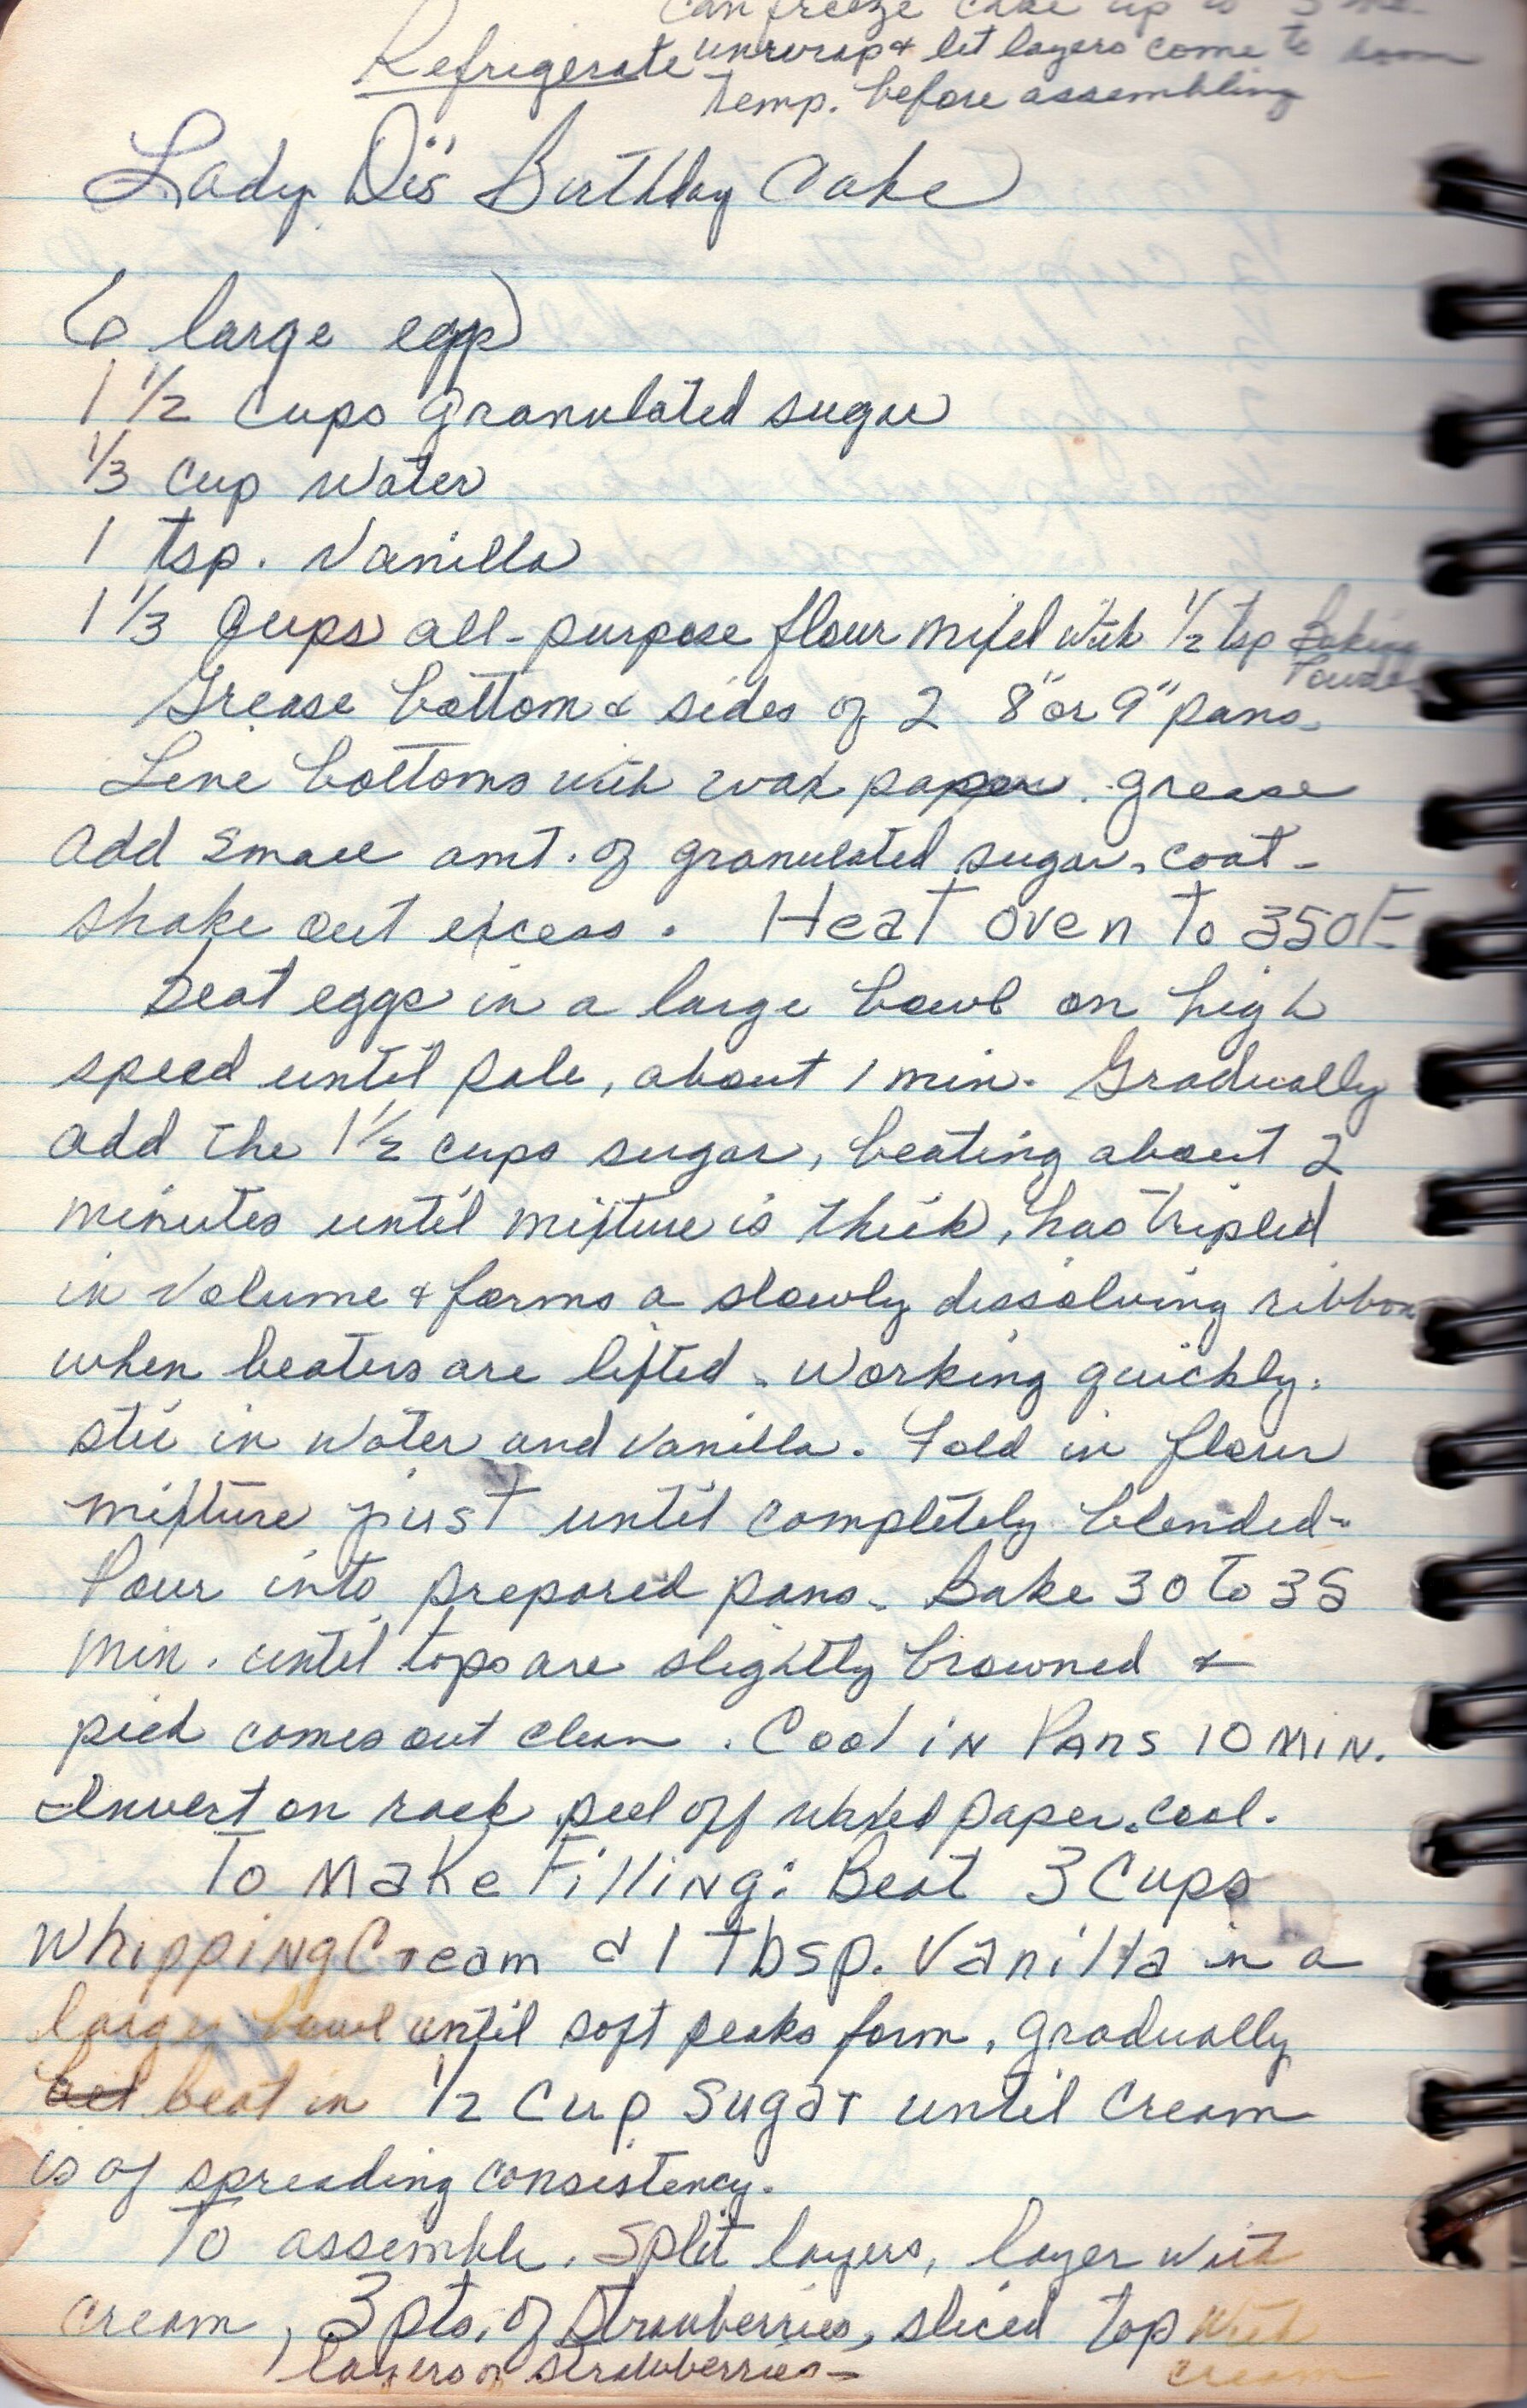 can freeze cake up to 3
Refrigerate unwrap & let layers come to room
temp. before assembling
Lady Di's Birthday Cake
6 large eggs
1 1/2 cups granulated sugar
1/3 cup water
1 tsp. Vanilla
1 1/3 Cups all-purpose flour mixed with 1/2 tsp Baking
Powder
Grease bottom & sides of 2 8" or 9" pans.
Line bottoms with wax paper. grease
add small amt. of granulated sugar, coat -
shake out excess. Heat oven to 350 F
Beat eggs in a large bowl on high
speed until pale, about 1 min. Gradually
add the 1 1/2 cups sugar, beating about 2
minutes until mixture is thick, has tripled
in Volume & forms a slowly dissolving ribbon
when beaters are lifted. Working quickly.
stir in water and vanilla. Fold in flour
mixture just until completely blended-
Pour into prepared pans. Bake 30 to 35
min. until tops are slightly browned &
pick comes out clean. Cool in Pans 10 MIN.
Invert on rack peel off waxed paper. cool.
To Make Filling: Beat 3 Cups
Whipping Cream & 1 Tbsp. Vanilla in a
large bowl until soft peaks form, gradually
beat in 1/2 Cup Sugar until cream
is of spreading consistency.
To assemble. Split layers, layer with
cream, 3 pts. of Strawberries, sliced top with
layers of strawberries - cream